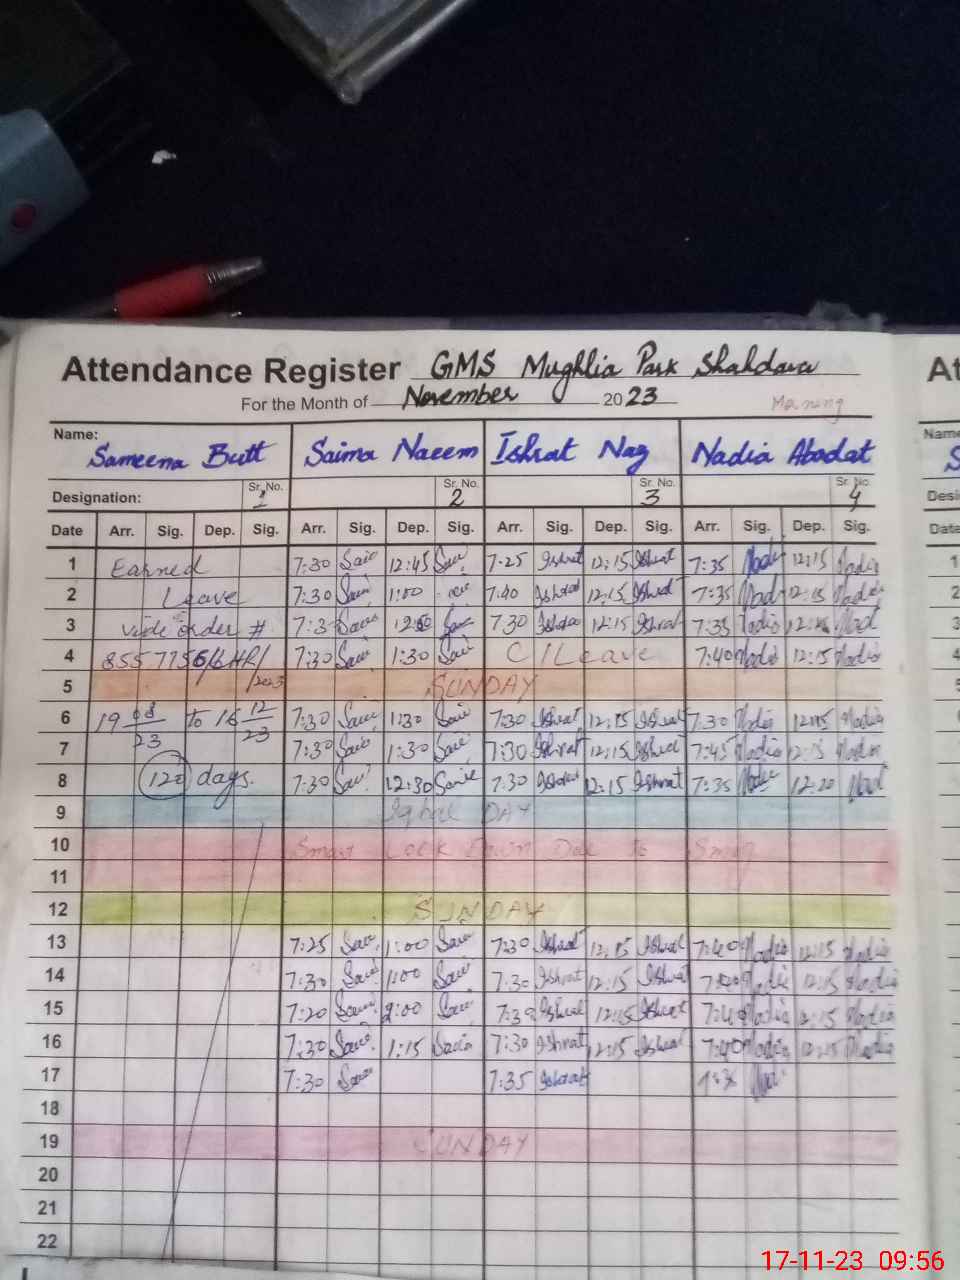 Attendance Register GMS Mughlia Park Shahdara At
For the Month of November 2023 Morning
Name: Sameena Butt Saima Naeem Ishrat Naz Nadia Abadat Name
Designation: Sr. No. 1 Sr. No. 2 Sr. No. 3 Sr. No. 4 Desi
Date Arr. Sig. Dep. Sig. Arr. Sig. Dep. Sig. Arr. Sig. Dep. Sig. Arr. Sig. Dep. Sig. Date
1 Earned 7:30 12:45 7:25 Ishrat 12:15 Ishrat 7:35 12:15 Nadia 1
2 Leave 7:30 1:00 7:40 Ishrat 12:15 Ishrat 7:35 12:15 Nadia 2
3 vide order # 7:30 7:30 Ishrat 12:15 Ishrat 7:35 Nadia 3
4 7:30 1:30 C/Leave 7:40 Nadia 12:15 Nadia 4
/2023
5 SUNDAY 5
6 19 08/23 to 16 12/23 7:30 1:30 7:30 Ishrat 12:15 Ishrat 7:30 Nadia 12:15 Nadia
7 7:30 1:30 7:30 Ishrat 12:15 Ishrat 7:45 Nadia 12:15 Nadia
8 120 days. 7:30 12:30 7:30 Ishrat 12:15 Ishrat 7:35 12:20
9 Iqbal DAY
10 Smart Lock Down Due to Smog
11
12 SUNDAY
13 7:25 1:00 7:30 Ishrat 12:15 Ishrat 7:40 Nadia 12:15 Nadia
14 7:30 1:00 7:30 Ishrat 12:15 Ishrat 7:40 Nadia 12:15 Nadia
15 7:20 2:00 Ishrat 12:15 Ishrat 7:40 Nadia 12:15 Nadia
16 7:30 1:15 7:30 Ishrat 12:15 Ishrat 7:40 Nadia 12:15 Nadia
17 7:30 7:35 Ishrat
18
19 SUNDAY
20
21
22
17-11-23 09:56